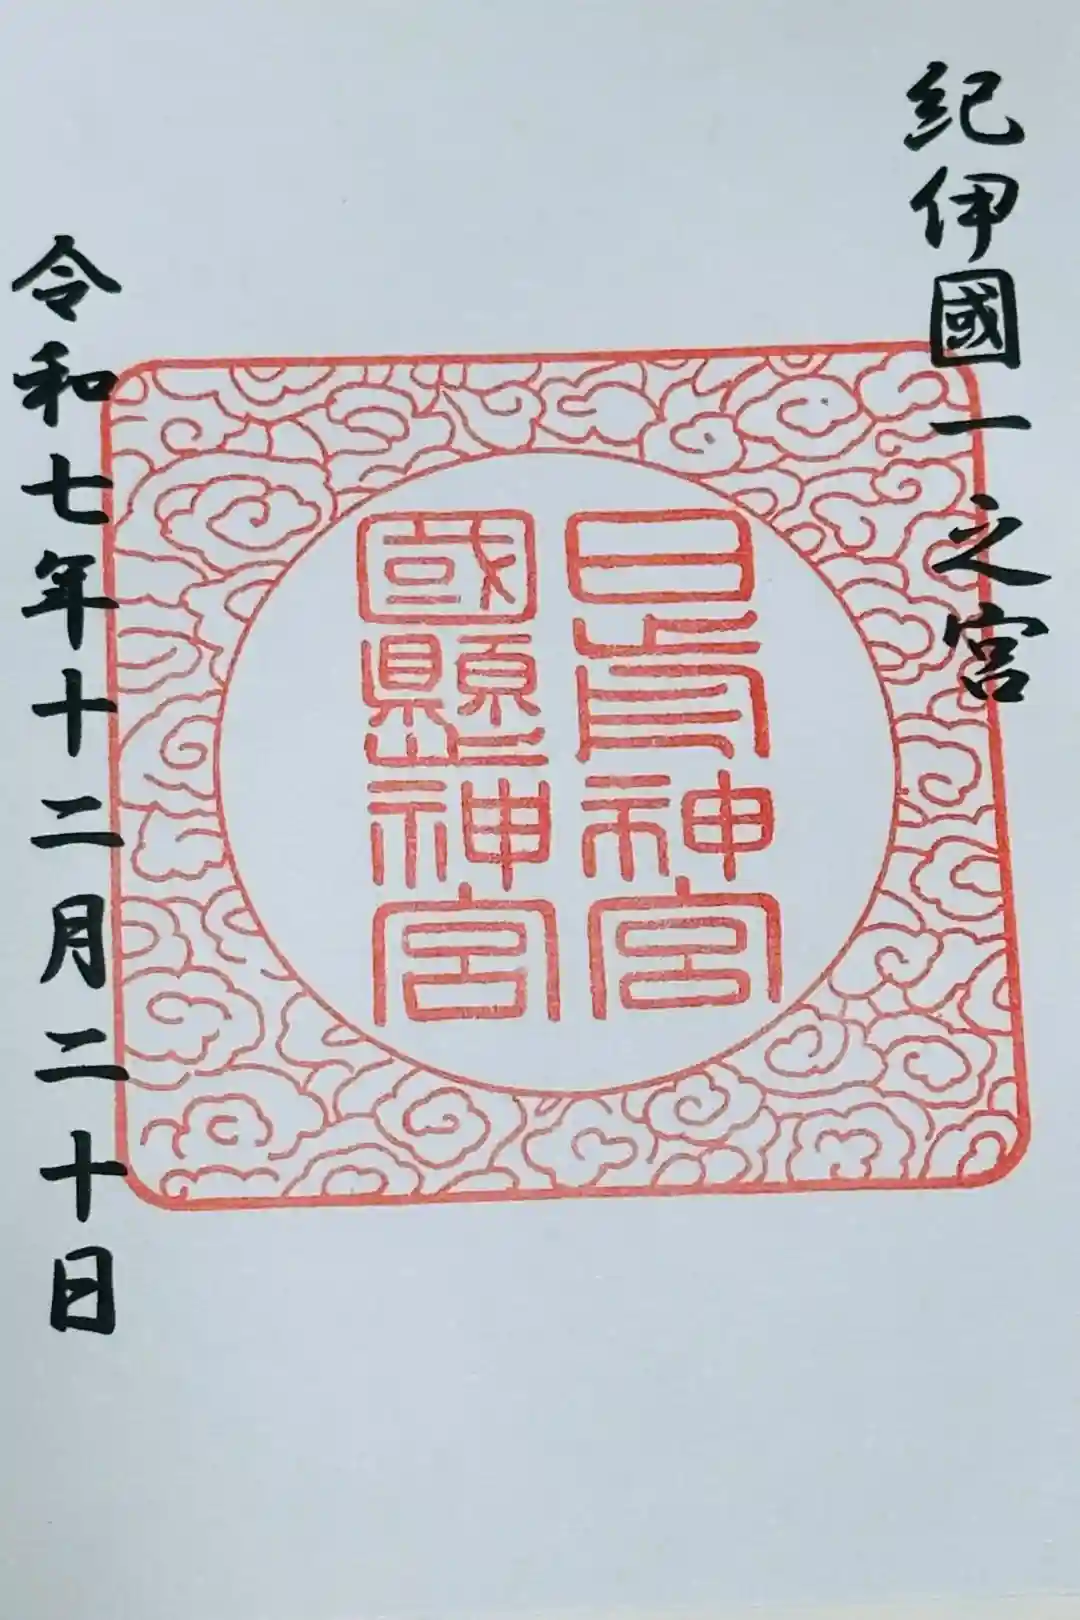 紀伊國一之宮
日前神宮
國懸神宮
令和七年十二月二十日